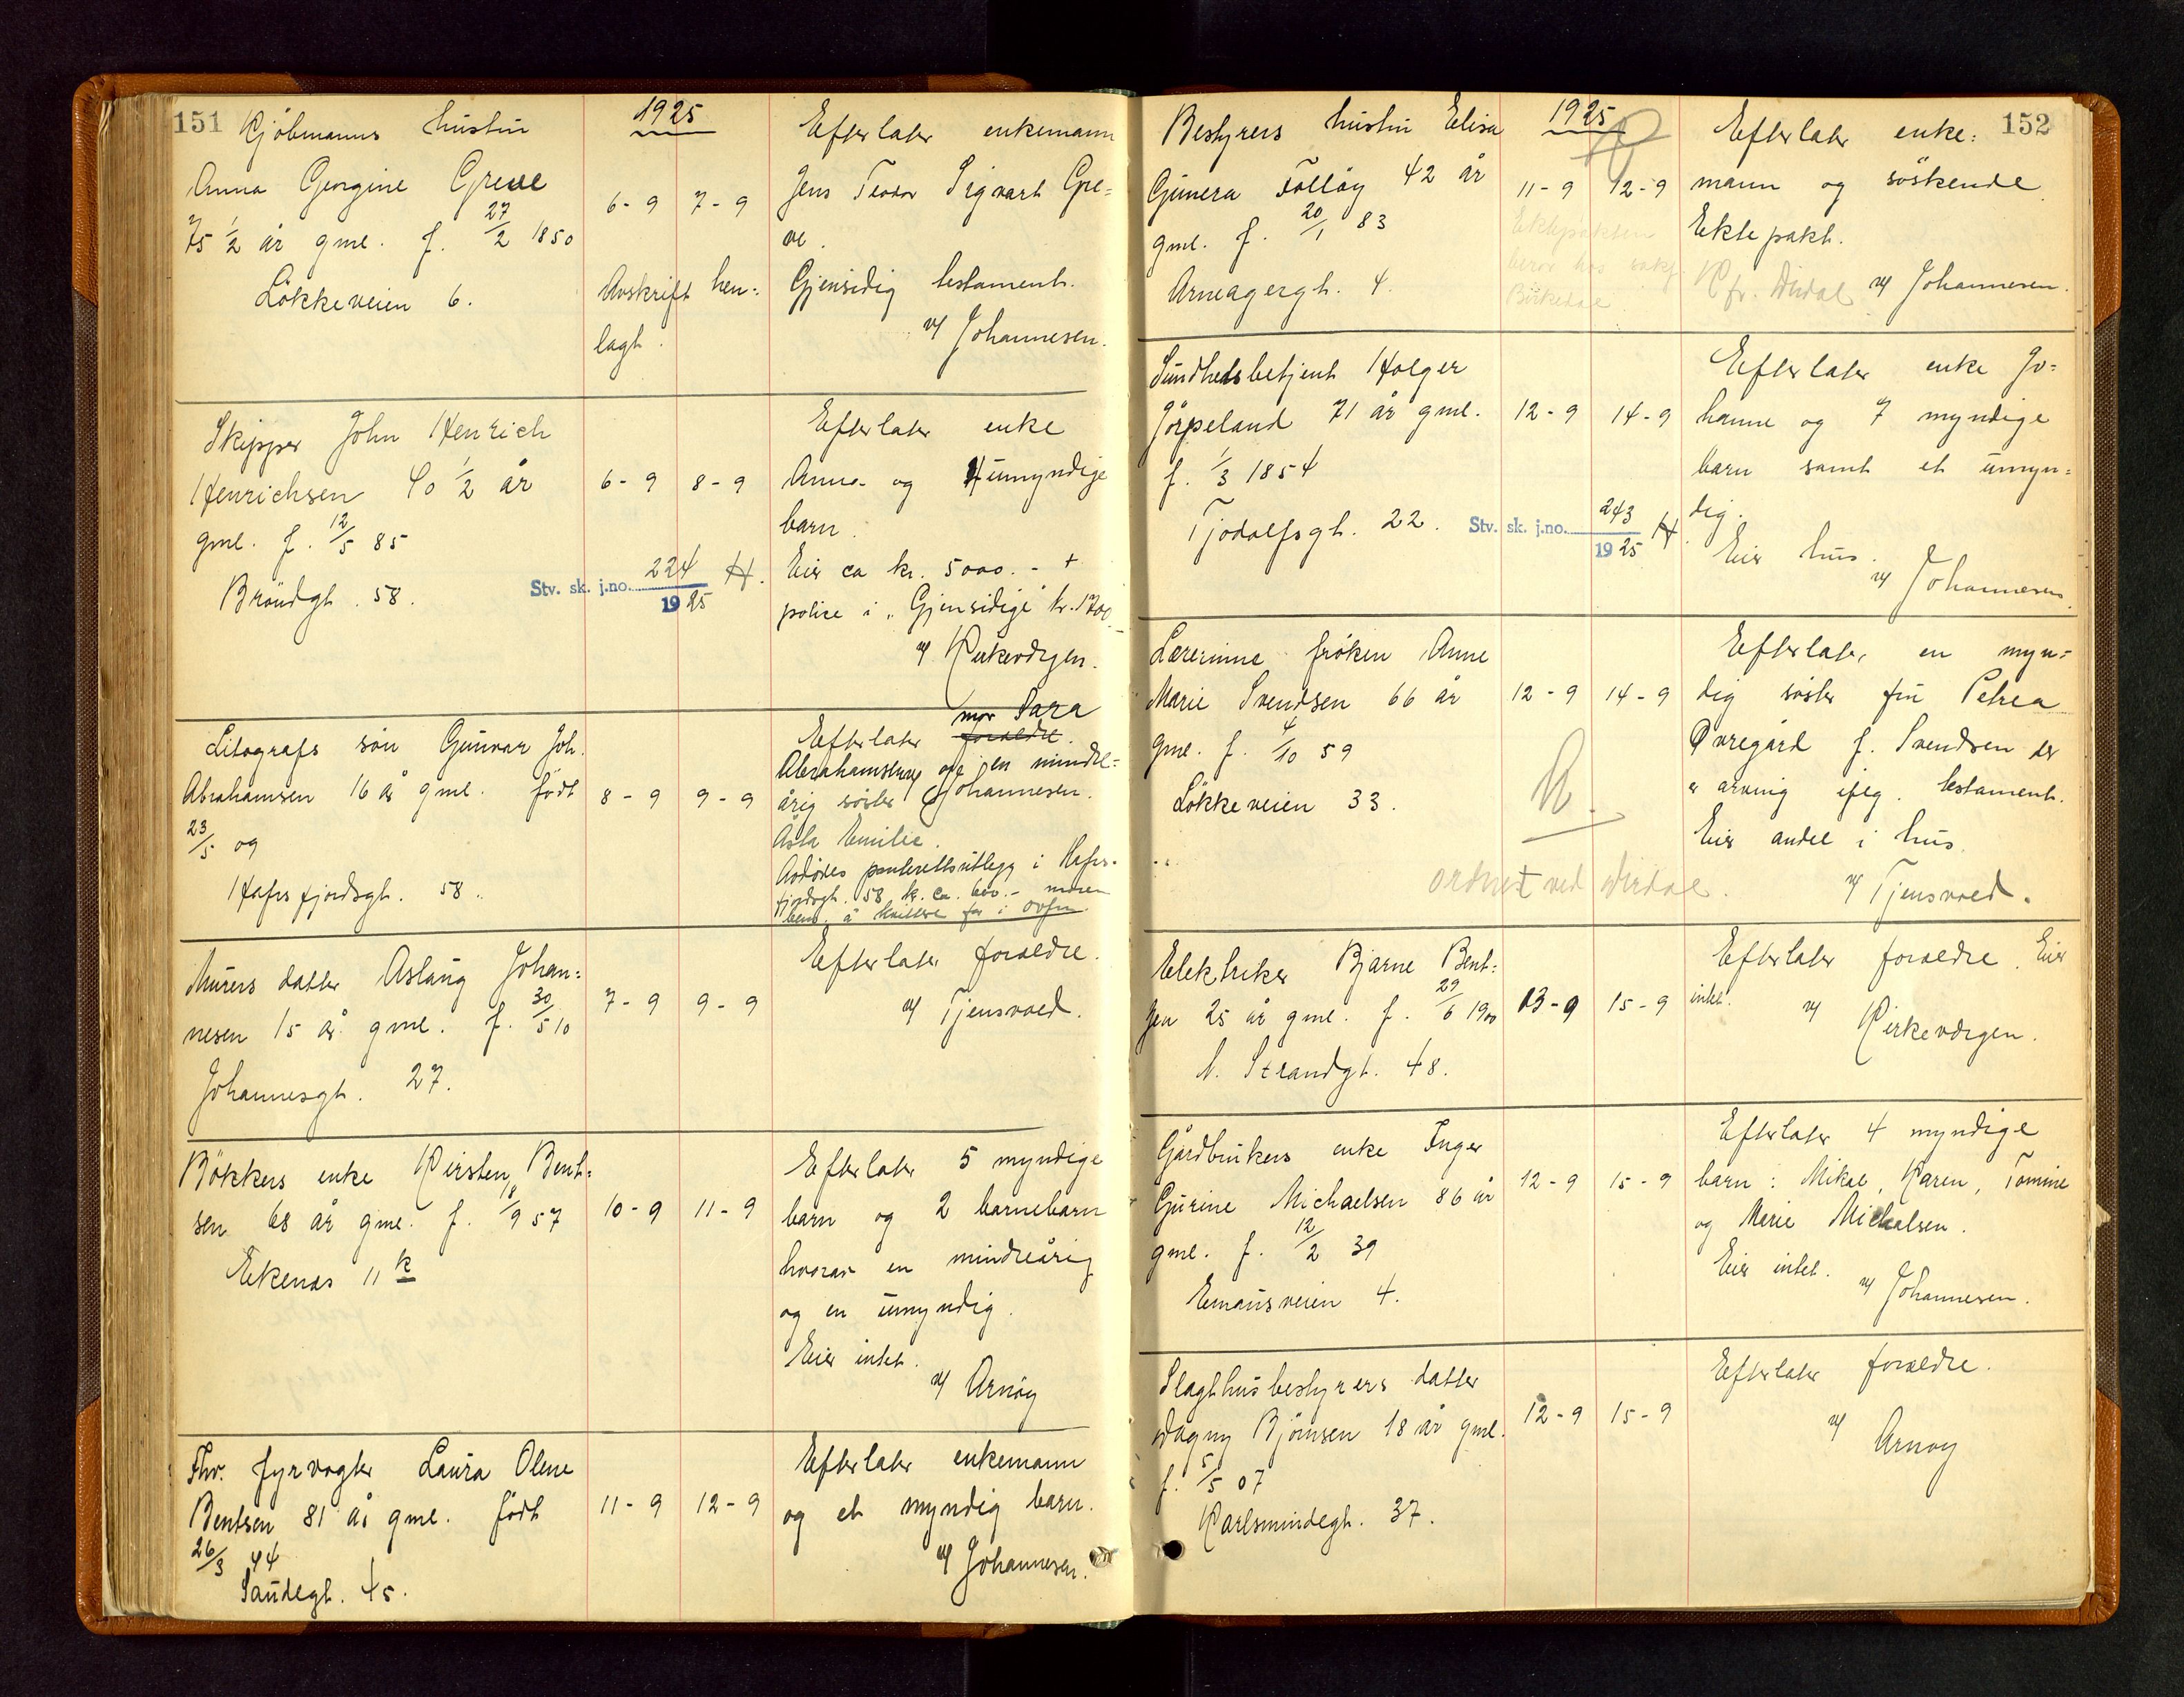 151
1925
Kjøbmanns hustru
Anna Georgine Greve
75 1/2 år gml. f. 27/2 1850
Løkkeveien 6.
6 - 9 7 - 9
Avskrift hen-
lagt.
Efterlater enkemann
Jens Teodor Sigvart Gre-
ve.
Gjensidig testament.
v/ Johannesen.
Skipper John Henrich
Henrichsen 40 1/2 år
gml. f. 12/5 85
Brøndgt. 58.
6 - 9 8 - 9
Stv. sk. j.no. 224 H.
1925
Efterlater enke
Anna og 4 umyndige
barn.
Eier ca kr. 5000.- +
police i "Gjensidige" kr. 1700.-
v/ Kirkevergen.
Litografs søn Gunvar Joh.
Abrahamsen 16 år gml. født
23/5 09
Hafrsfjordsgt. 58.
8 - 9 9 - 9
mor Sara
Efterlater foreldre.
Abrahamsen og en mindre-
årig søster Johannesen.
Åsta Emilie.
Avdødes panterettsutlegg i Hafrs-
fjordsgt. 58 kr. ca. 600.- moren
Murers datter Aslaug Johan-
nesen 15 år gml. f. 30/5 10
Johannesgt. 27.
7 - 9 9 - 9
Efterlater foreldre.
v/ Tjensvoll.
Bøkkers enke Kirsten Bent-
sen 68 år gml. f. 18/9 57
Ekenes 11 k
10 - 9 11 - 9
Efterlater 5 myndige
barn og 2 barnebarn
hvorav en mindreårig
og en umyndig.
Eier intet.
v/ Arnøy
Fhv. fyrvogter Laura Olene
Bentsen 81 år gml. født
26/3 44
Saudegt. 45.
11 - 9 12 - 9
Efterlater enkemann
og et myndig barn.
v/ Johannesen.
152
1925
Bestyrers hustru Elisa
Gunera Folløy 42 år
gml. f. 20/1 83
Arneagergt. 4.
11 - 9 12 - 9
Ektepakten
beror hos sakf.
Birkedal
Efterlater enke-
mann og søskende
Ektepakt.
v/ Johannesen.
Sundhedsbetjent Holger
Jørpeland 71 år gml.
f. 1/3 1854
Tjodolfsgt. 22.
12 - 9 14 - 9
Stv. sk. j.no. 243 H.
1925
Efterlater enke Jo-
hanne og 7 myndige
barn samt et umyn-
dig.
Eier hus.
v/ Johannesen.
Lærerinne frøken Anne
Marie Svendsen 66 år
gml. f. 4/10 59
Løkkeveien 33.
12 - 9 14 - 9
ordnet ved
Efterlater en myn-
dig søster fru Petrea
Øvregård f. Svendsen der
er arving iflg. testament.
Eier andel i hus.
v/ Tjensvoll.
Elektriker Bjarne Bent-
zen 25 år gml. f. 29/6 1900
N. Strandgt. 48.
13 - 9 15 - 9
Efterlater foreldre. Eier
intet.
v/ Kirkevergen.
Gårdbrukers enke Inger
Gurine Michaelsen 86 år
gml. f. 12/2 39
Emausveien 4.
12 - 9 15 - 9
Efterlater 4 myndige
barn: Mikal, Karen, Tomine
og Marie Michalsen.
Eier intet.
v/ Johannesen.
Slagthusbestyrers datter
Dagny Bjørnsen 18 år gml.
f. 5/5 07
Karlsmindegt. 37.
12 - 9 15 - 9
Efterlater foreldre.
v/ Arnøy